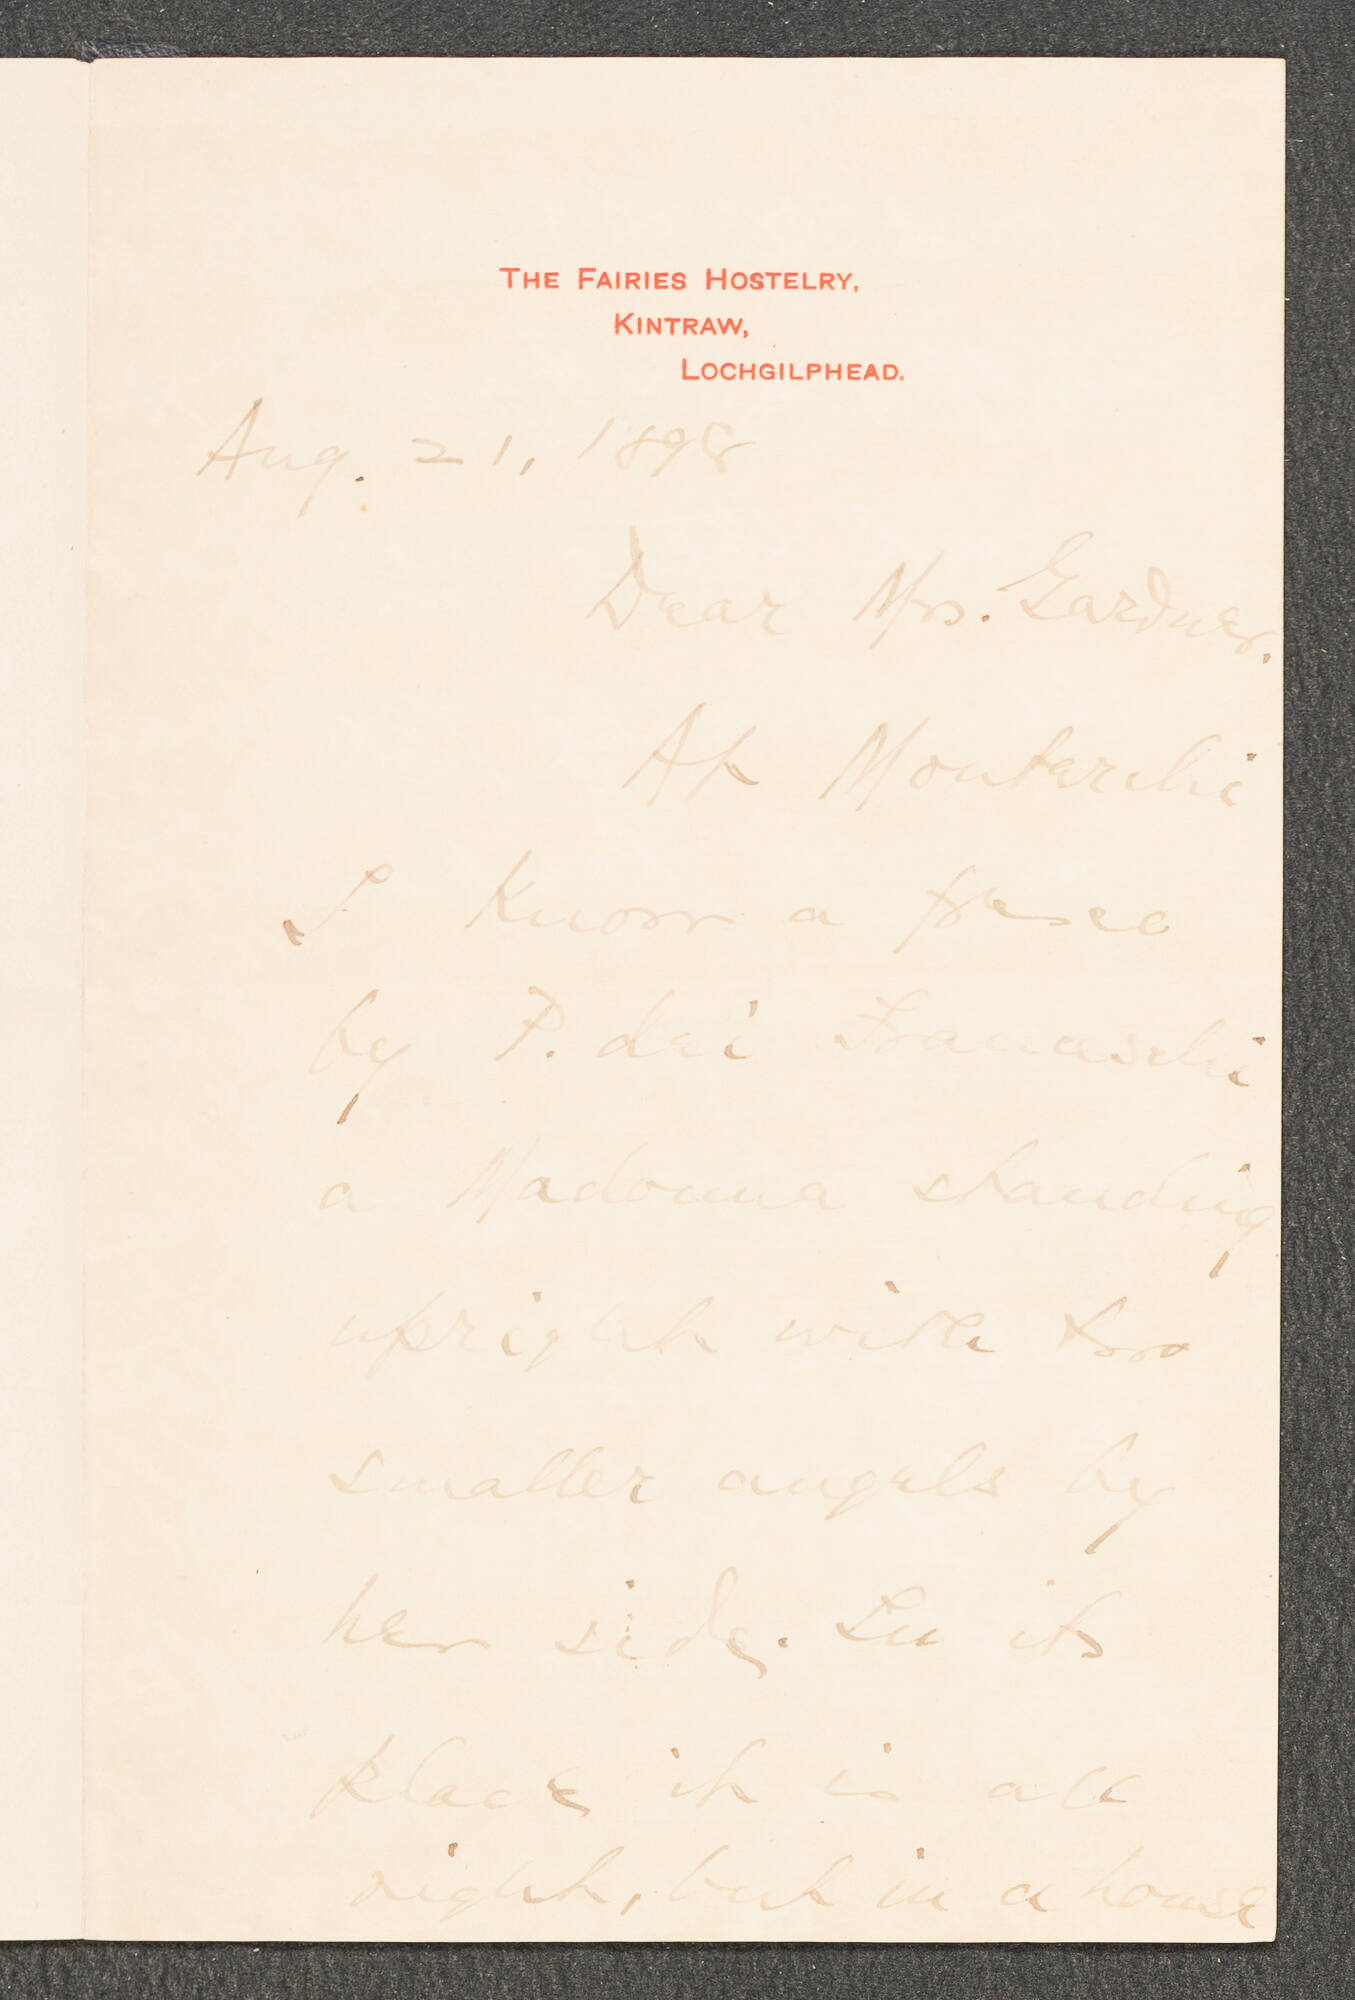 THE FAIRIES HOSTELRY,
KINTRAW,
LOCHGILPHEAD.
Aug. 21, 1898
Dear Mrs. Gardner.
At Monterchi
I know a fresco
by P. dei Franceschi
a Madonna standing
upright with two
smaller angels by
her side. In its
place it is all
right, but in a house